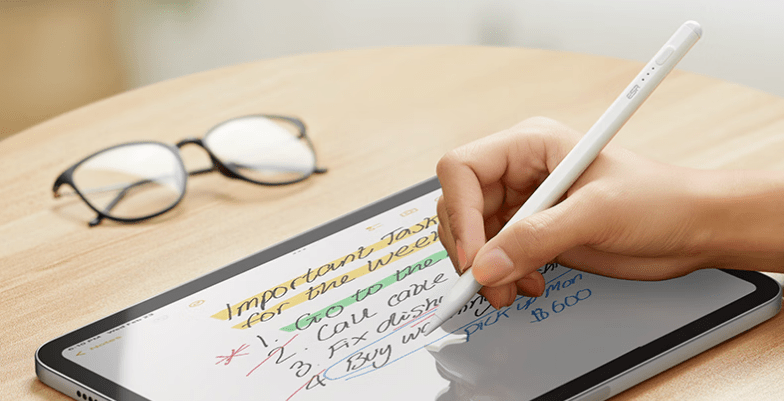 Important Task
for the Week
1. Go to the
2. Call cable
3 Fix dishw
4 Buy
pick up Mon
$600
Notes
ESR